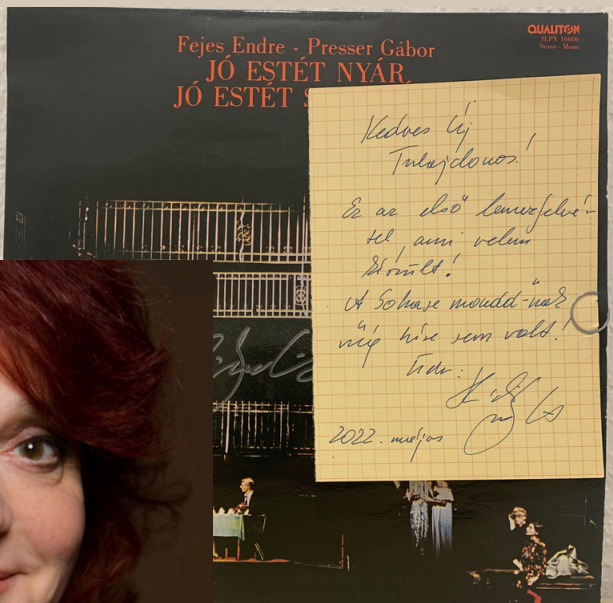 QUALITON
SLPX 16606
Stereo - Mono
Fejes Endre - Presser Gábor
JÓ ESTÉT NYÁR,
JÓ ESTÉT
Kedves Új
Tulajdonos!
Ez az első lemezfelvé-
tel, ami velem
készült!
A Sohase mondd-nak
még híre sem volt!
Üdv:
2022. május